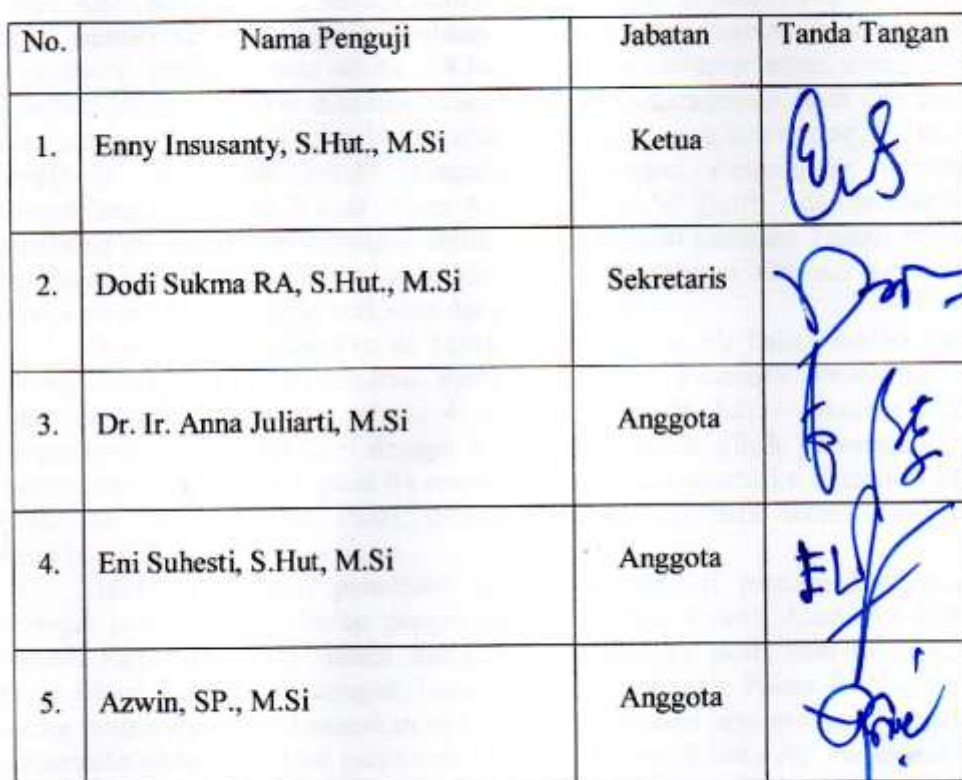 No. Nama Penguji Jabatan Tanda Tangan
1. Enny Insusanty, S.Hut., M.Si Ketua
2. Dodi Sukma RA, S.Hut., M.Si Sekretaris
3. Dr. Ir. Anna Juliarti, M.Si Anggota
4. Eni Suhesti, S.Hut, M.Si Anggota
5. Azwin, SP., M.Si Anggota